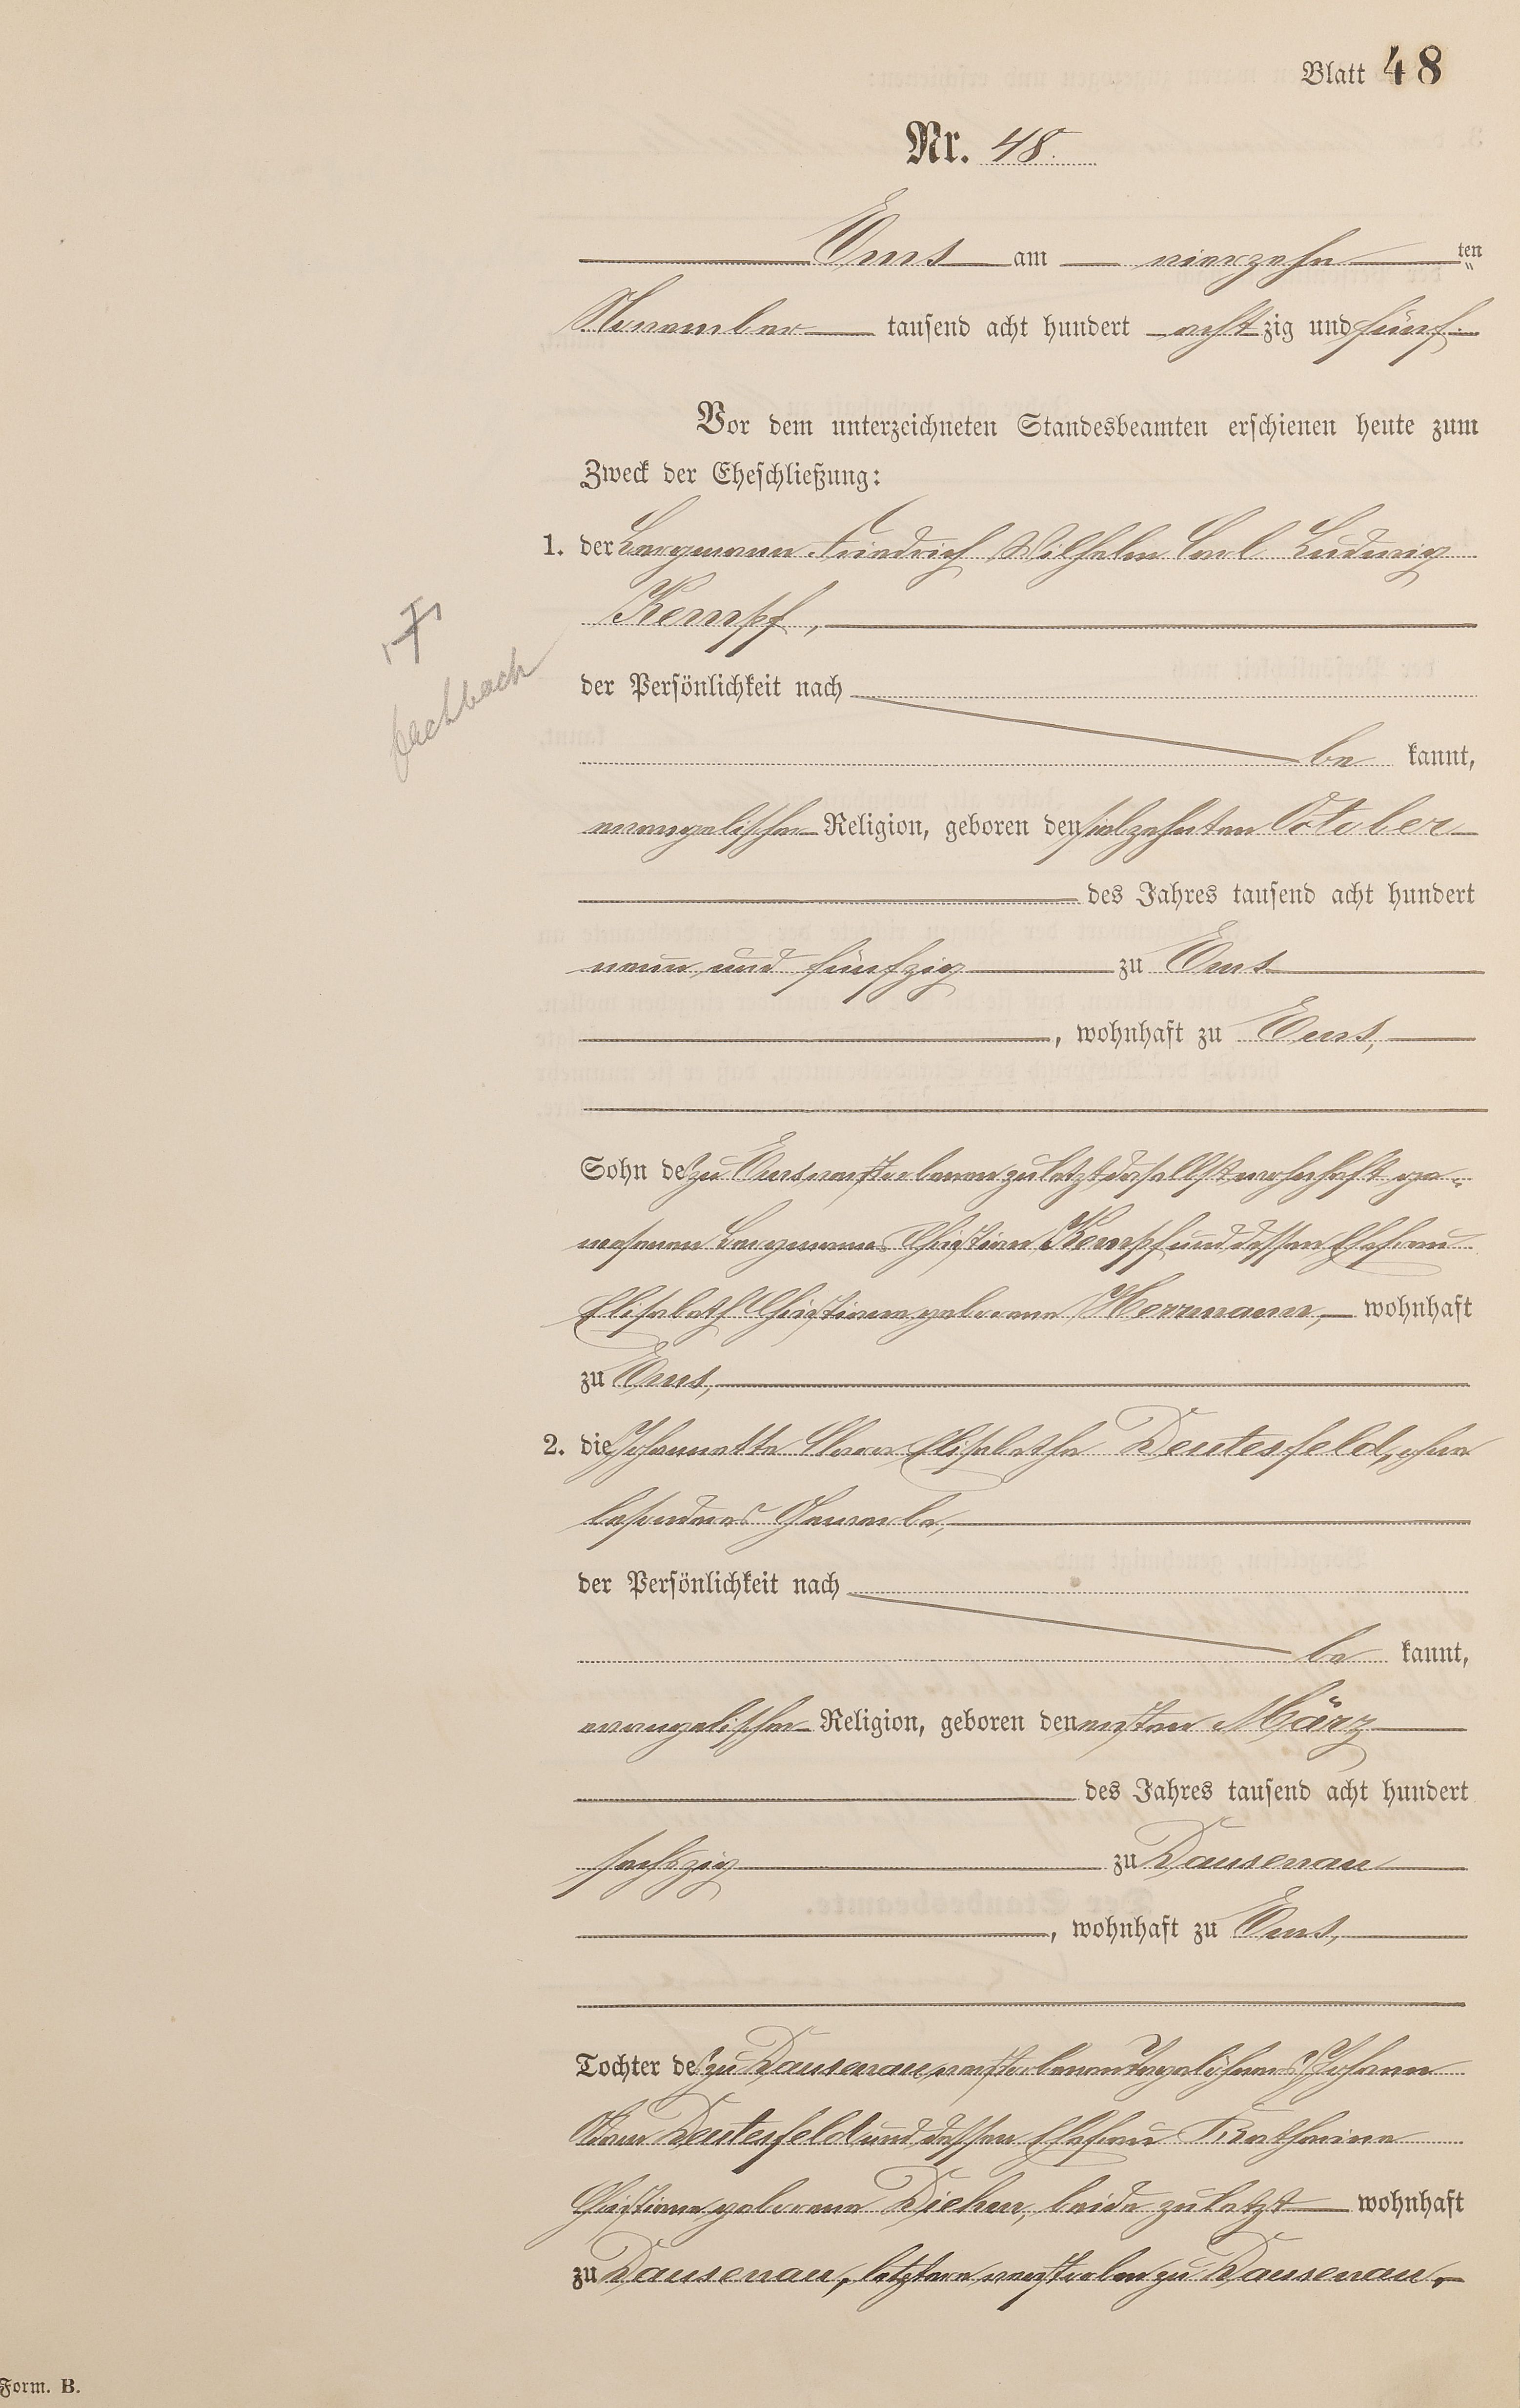 Blatt 48
Nr. 48.
Ems am vierzehn ten
November tausend acht hundert acht zig und fünf.
Vor dem unterzeichneten Standesbeamten erschienen heute zum
Zweck der Eheschließung:
1. der Bergmann Friedrich Wilhelm Carl Ludwig
Kempf,
der Persönlichkeit nach
be kannt,
Fachbach
evangelischer Religion, geboren den siebzehnten October
des Jahres tausend acht hundert
neun und fünfzig zu Ems
, wohnhaft zu Ems,
Sohn des zu Ems verstorbenen zuletzt daselbst wohnhaft ge„
wesenen Bergmanns Christian Kempf und dessen Ehefrau
Elisabeth Christiane geborene Herrmann, wohnhaft
zu Ems,
2. die Johannette Clara Elisabethe Deutesfeld, ohne
besonderes Gewerbe,
der Persönlichkeit nach
be kannt,
evangelischer Religion, geboren den ersten März
des Jahres tausend acht hundert
sechszig zu Dausenau
, wohnhaft zu Ems,
Tochter des zu Dausenau verstorbenen Tagelöhners Johann
Adam Deutesfeld und dessen Ehefrau Katharine
Christiane geborene Diehm, beide zuletzt wohnhaft
zu Dausenau, letztere verstorben zu Dausenau,
Form. B.